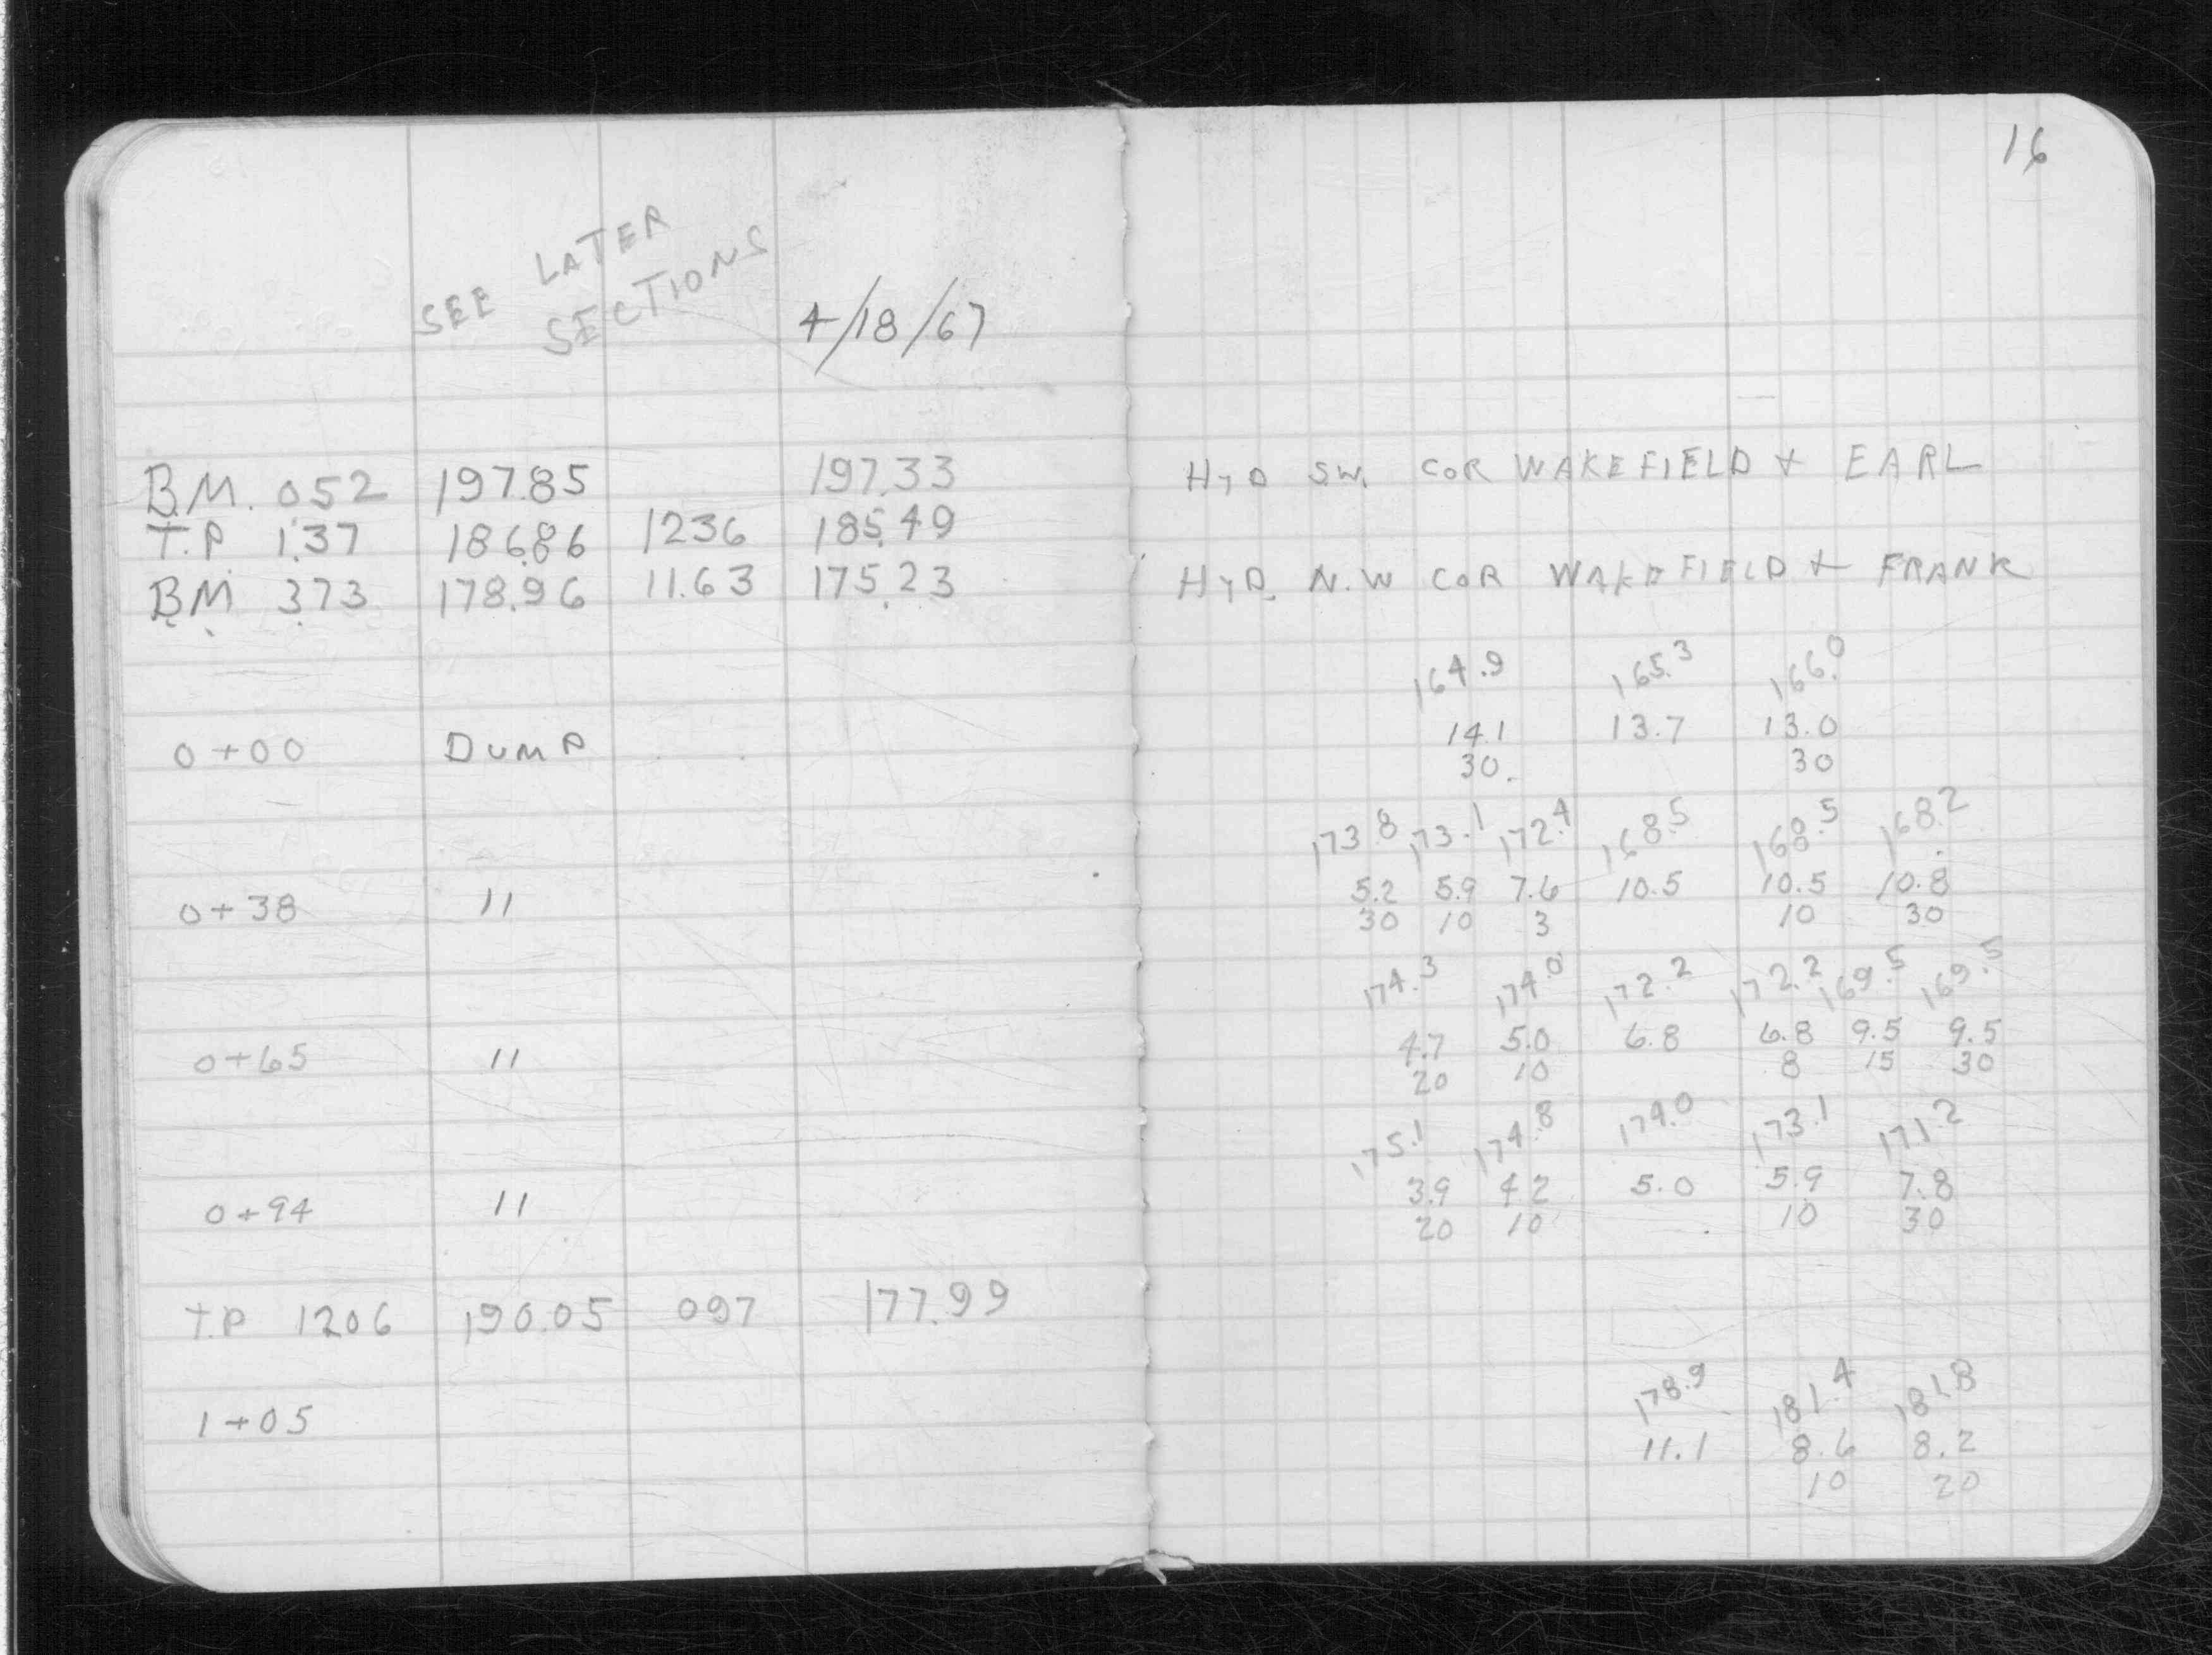 16
SEE LATER
SECTIONS
4/18/67
B.M. 052 197.85 197.33 HYD SW. COR WAKEFIELD + EARL
T.P. 1.37 186.86 1236 185.49
BM 3.73 178.96 11.63 175.23 HYD. N.W COR WAKEFIELD + FRANK
164.9 165.3 166.0
0+00 DUMP 14.1 13.7 13.0
30. 30
173.8 173.1 172.4 168.5 168.5 168.2
0+38 11 5.2 5.9 7.6 10.5 10.5 10.8
30 10 3 10 30
174.3 174.0 172.2 172.2 169.5 169.5
0+65 11 4.7 5.0 6.8 6.8 9.5 9.5
20 10 8 15 30
175.1 174.8 174.0 173.1 171.2
0+94 11 3.9 4.2 5.0 5.9 7.8
20 10 10 30
T.P 1206 190.05 097 177.99
178.9 181.4 181.8
1+05 11.1 8.6 8.2
10 20